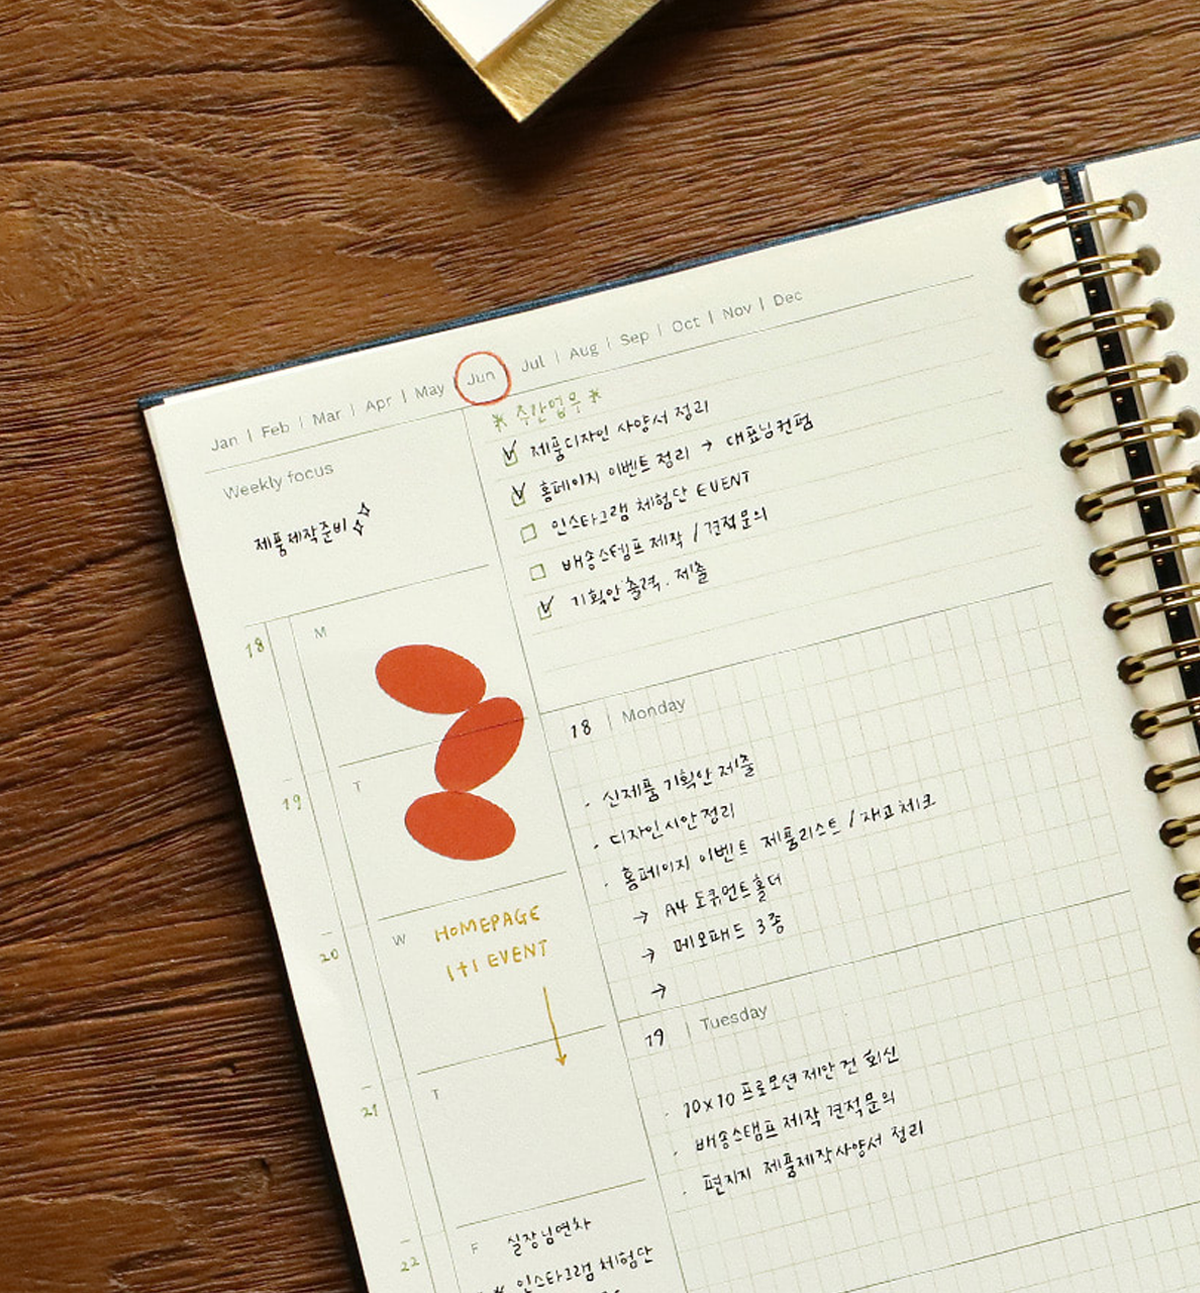 Jan | Feb | Mar | Apr | May | Jun | Jul | Aug | Sep | Oct | Nov | Dec
Weekly focus
제품제작준비
* 주간업무 *
제품디자인 사양서 정리
홈페이지 이벤트 정리 → 대표님컨펌
인스타그램 체험단 EVENT
배송스템프 제작 / 견적문의
기획안출력. 제출
18
M
19
T
20
W
HOMEPAGE
1+1 EVENT
21
T
22
F
실장님연차
* 인스타그램 체험단
18 | Monday
· 신제품 기획안 제출
· 디자인시안정리
· 홈페이지 이벤트 제품리스트 / 재고체크
→ A4 도큐먼트홀더
→ 메모패드 3종
→
19 | Tuesday
· 10x10 프로모션 제안 건 회신
· 배송스탬프 제작 견적문의
· 편지지 제품제작사양서 정리